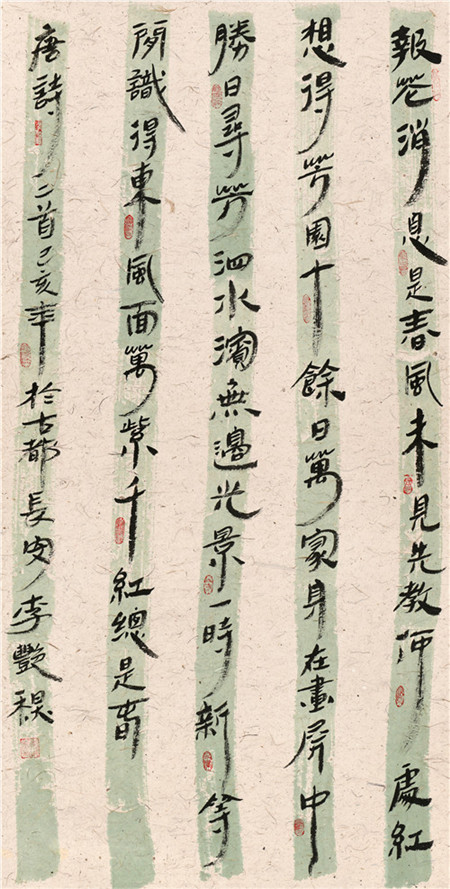 報花消息是春風未見先教何處紅
想得芳園十餘日萬家身在畫屏中
勝日尋芳泗水濱無邊光景一時新等
閒識得東風面萬紫千紅總是春
唐詩二首己亥年於古都長安李艷